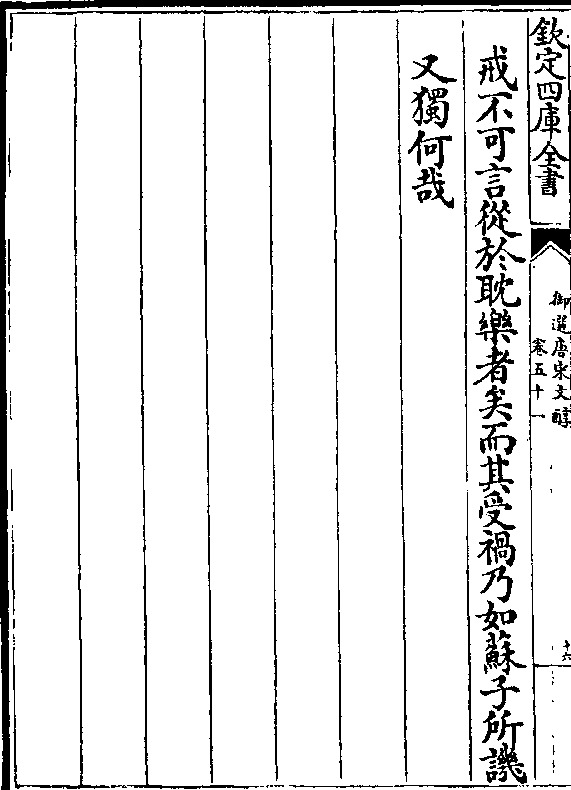 欽定四庫全書
御選唐宋文醇
卷五十一
十六
戒不可言從於耽樂者矣而其受禍乃如蘇子所譏
又獨何哉